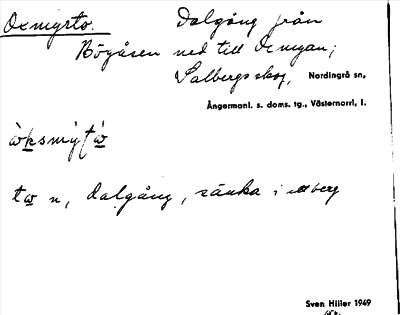 Oxmyrto. Dalgång från
Högåsen ned till Oxmyran;
Salbergs skog, Nordingrå sn,
Ångermanl. s. doms. tg., Västernorrl, l.
tω n, dalgång, sänka i ett berg
Sven Hiller 1949